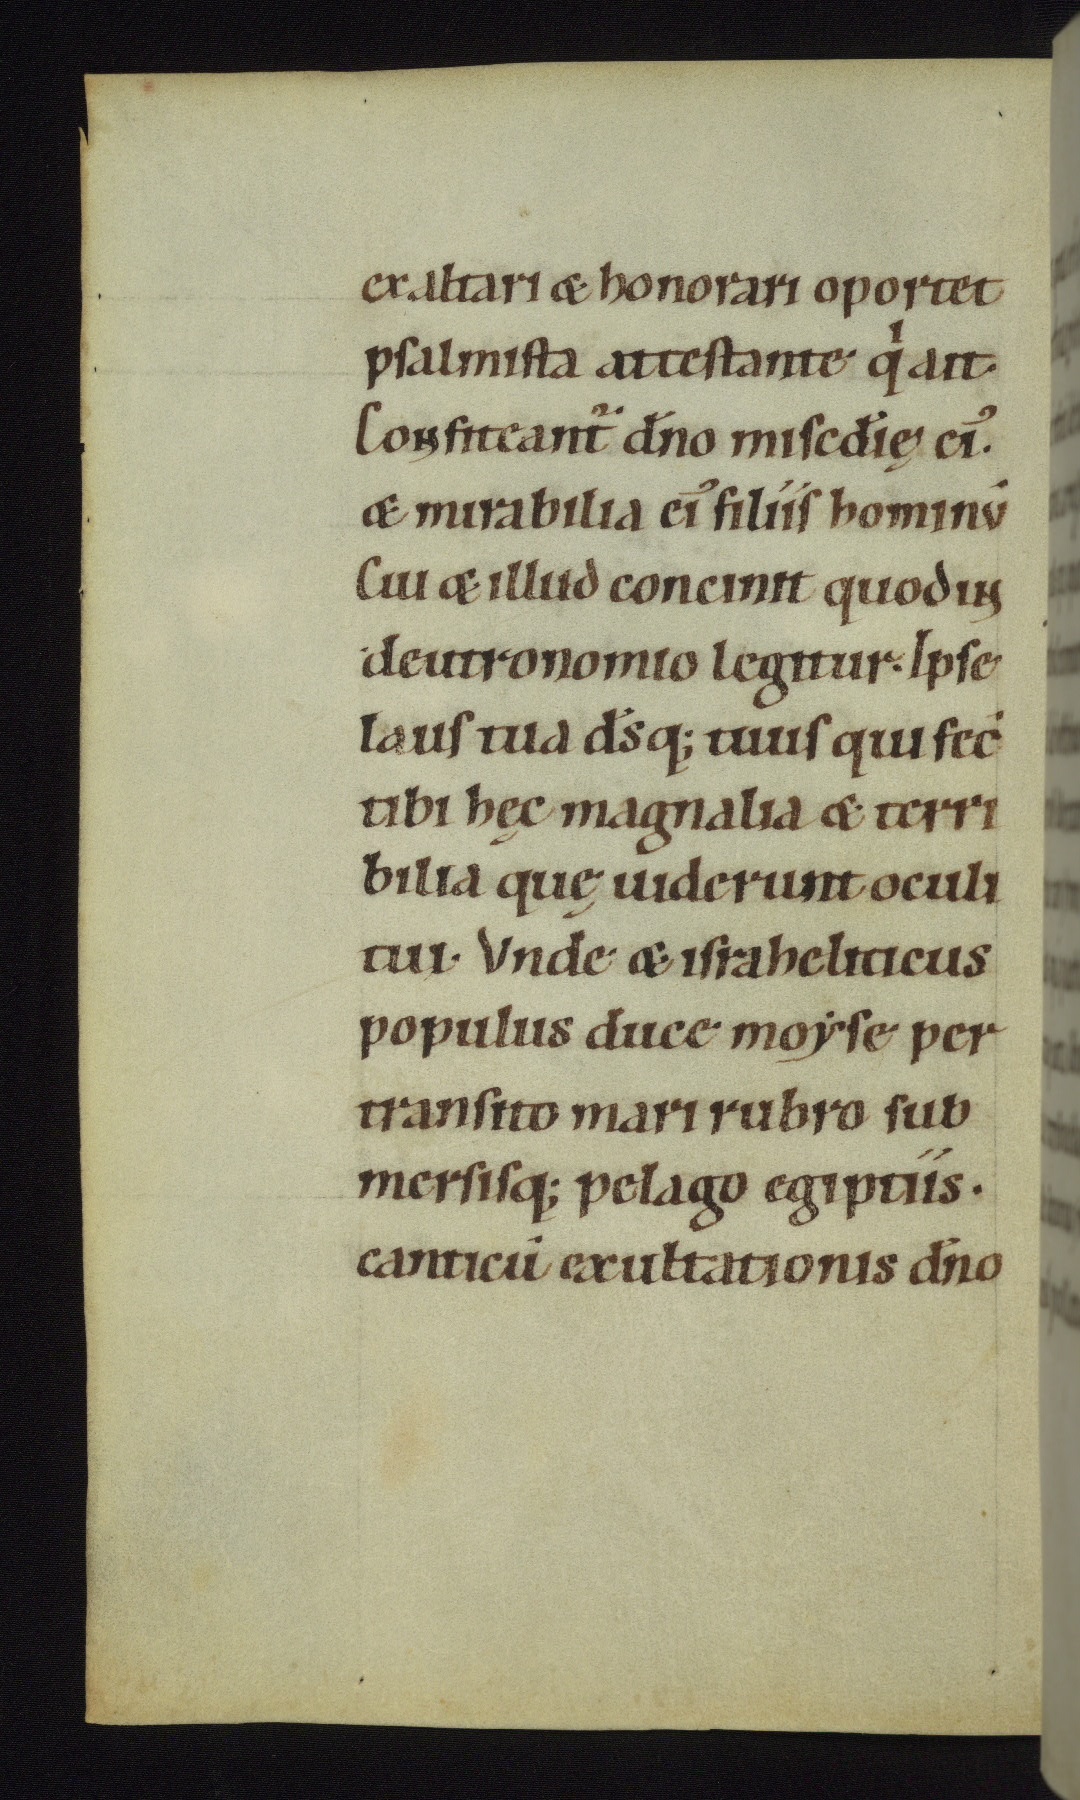 exaltari & honorari oportet
psalmista attestante qͥ ait.
Confiteant᷑ dño misc̄dię ei᾿.
& mirabilia ei᾿ filiis hominū
Cui & illud concinit quod in
deutronomio legitur. Ipse
laus tua d̄s q; tuus qui fec̄
tibi hęc magnalia & terri
bilia quę uiderunt oculi
tui. Vnde & israheliticus
populus duce moẏse per
transito mari rubro sub
mersisq; pelago egiptiis.
canticū exultationis dño